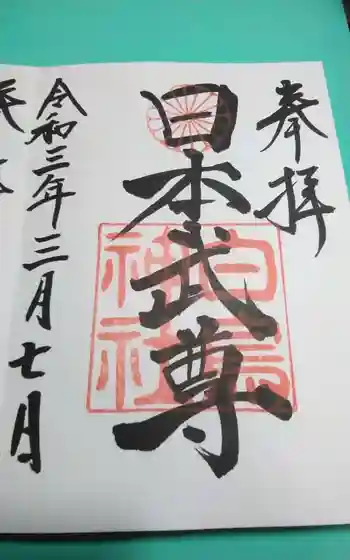 奉拝
日本武尊
白鳥神社
令和三年三月七日